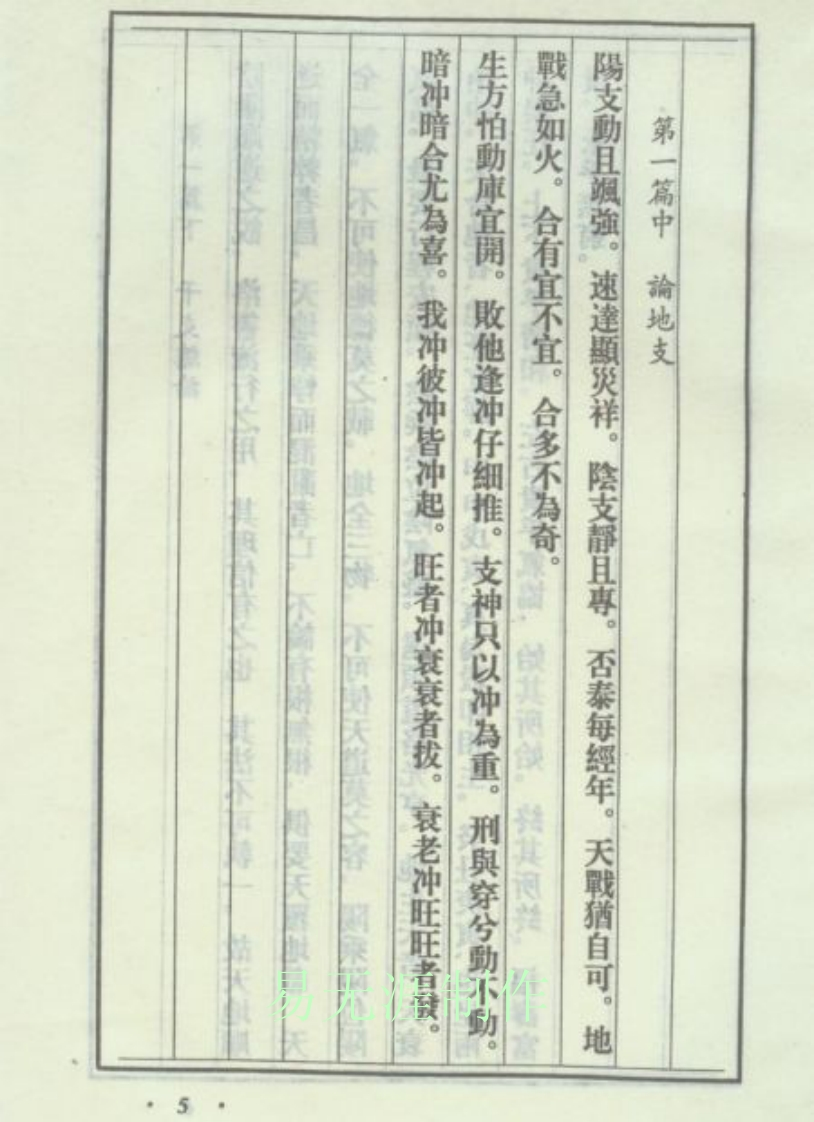 第一篇中　論地支
陽支動且颯強。速達顯災祥。陰支靜且專。否泰每經年。天戰猶自可。地
戰急如火。合有宜不宜。合多不為奇。
生方怕動庫宜開。敗他逢冲仔細推。支神只以冲為重。刑與穿兮動不動。
暗冲暗合尤為喜。我冲彼冲皆冲起。旺者冲衰衰者拔。衰老冲旺旺者發。
易无涯制作
· 5 ·